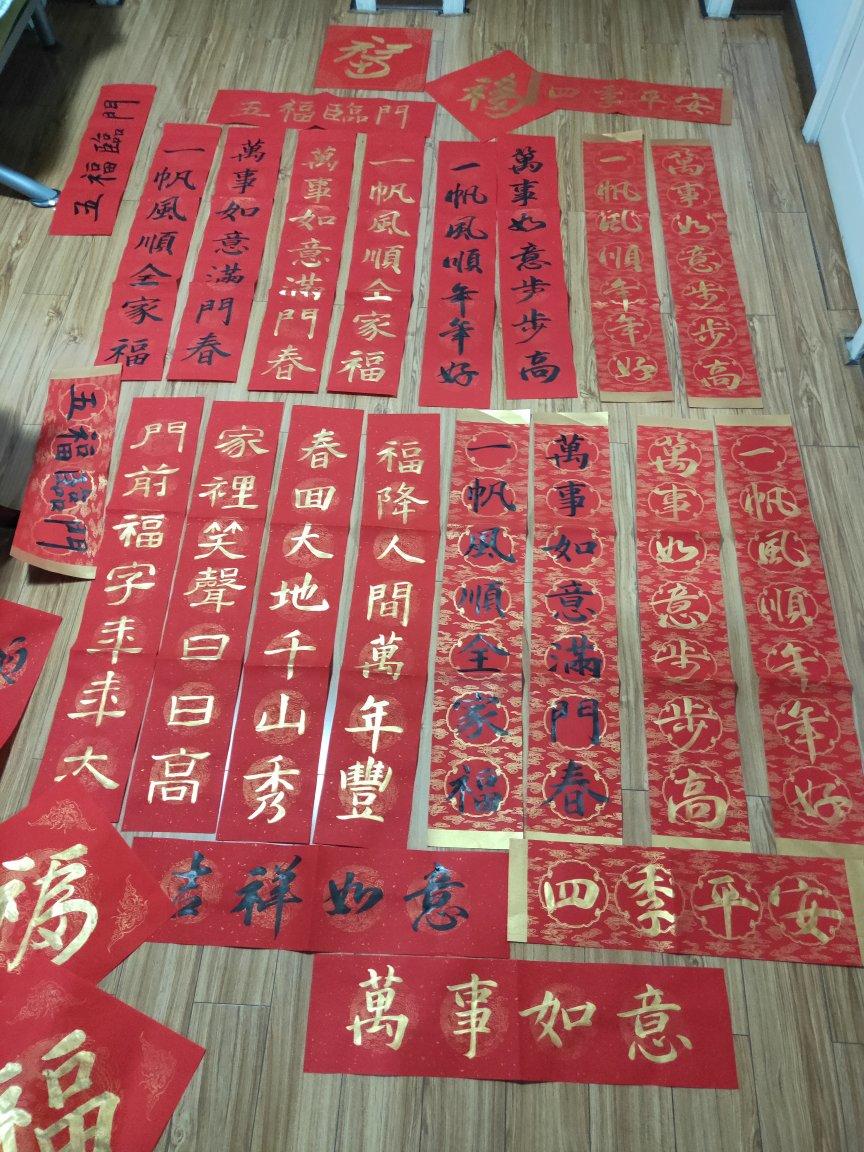 福
福
四季平安
五福臨門
五福臨門
一帆風順全家福
萬事如意滿門春
萬事如意滿門春
一帆風順全家福
一帆風順年年好
萬事如意步步高
一帆風順年年好
萬事如意步步高
五福臨門
門前福字年年大
家裡笑聲日日高
春回大地千山秀
福降人間萬年豐
一帆風順全家福
萬事如意滿門春
萬事如意步步高
一帆風順年年好
福
吉祥如意
四季平安
萬事如意
福